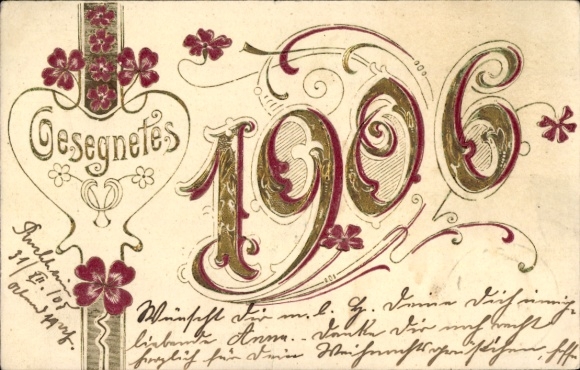 Gesegnetes
1906
31/XII. 05
Wünscht Dir m. l. G. Deine Dich innig-
liebende Anna.. Danke Dir noch recht
herzlich für Dein Weihnachts